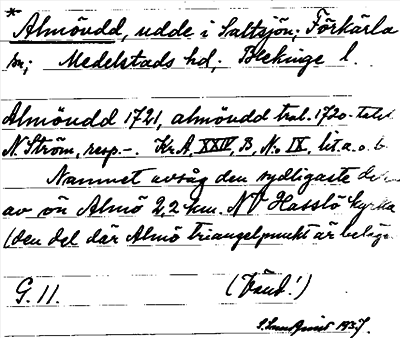 * Almöudd, udde i Saltsjön; Förkärla
sn; Medelstads hd; Blekinge l.
Almöudd 1721, almöudd trol. 1720-talet
N Ström, resp. -. Kr. A, XXIV, B, No IX, lit. a. o. b.
Namnet avsåg den sydligaste
av ön Almö 2,2 km. NV Hasslö kyrka
(den del där Almö triangelpunkt är
G. 11. (Vänd!)
1937.